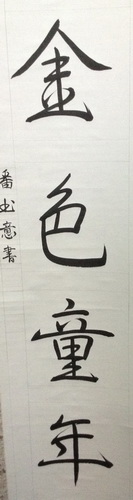 金色童年
番出意書